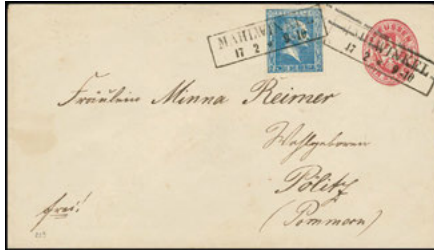 MAHLWINKEL
17 2 9-10
MAHLWINKEL
17 2 9-10
Fräulein Minna Reimer
Wohlgeboren
Pölitz
(Pommern)
frei!